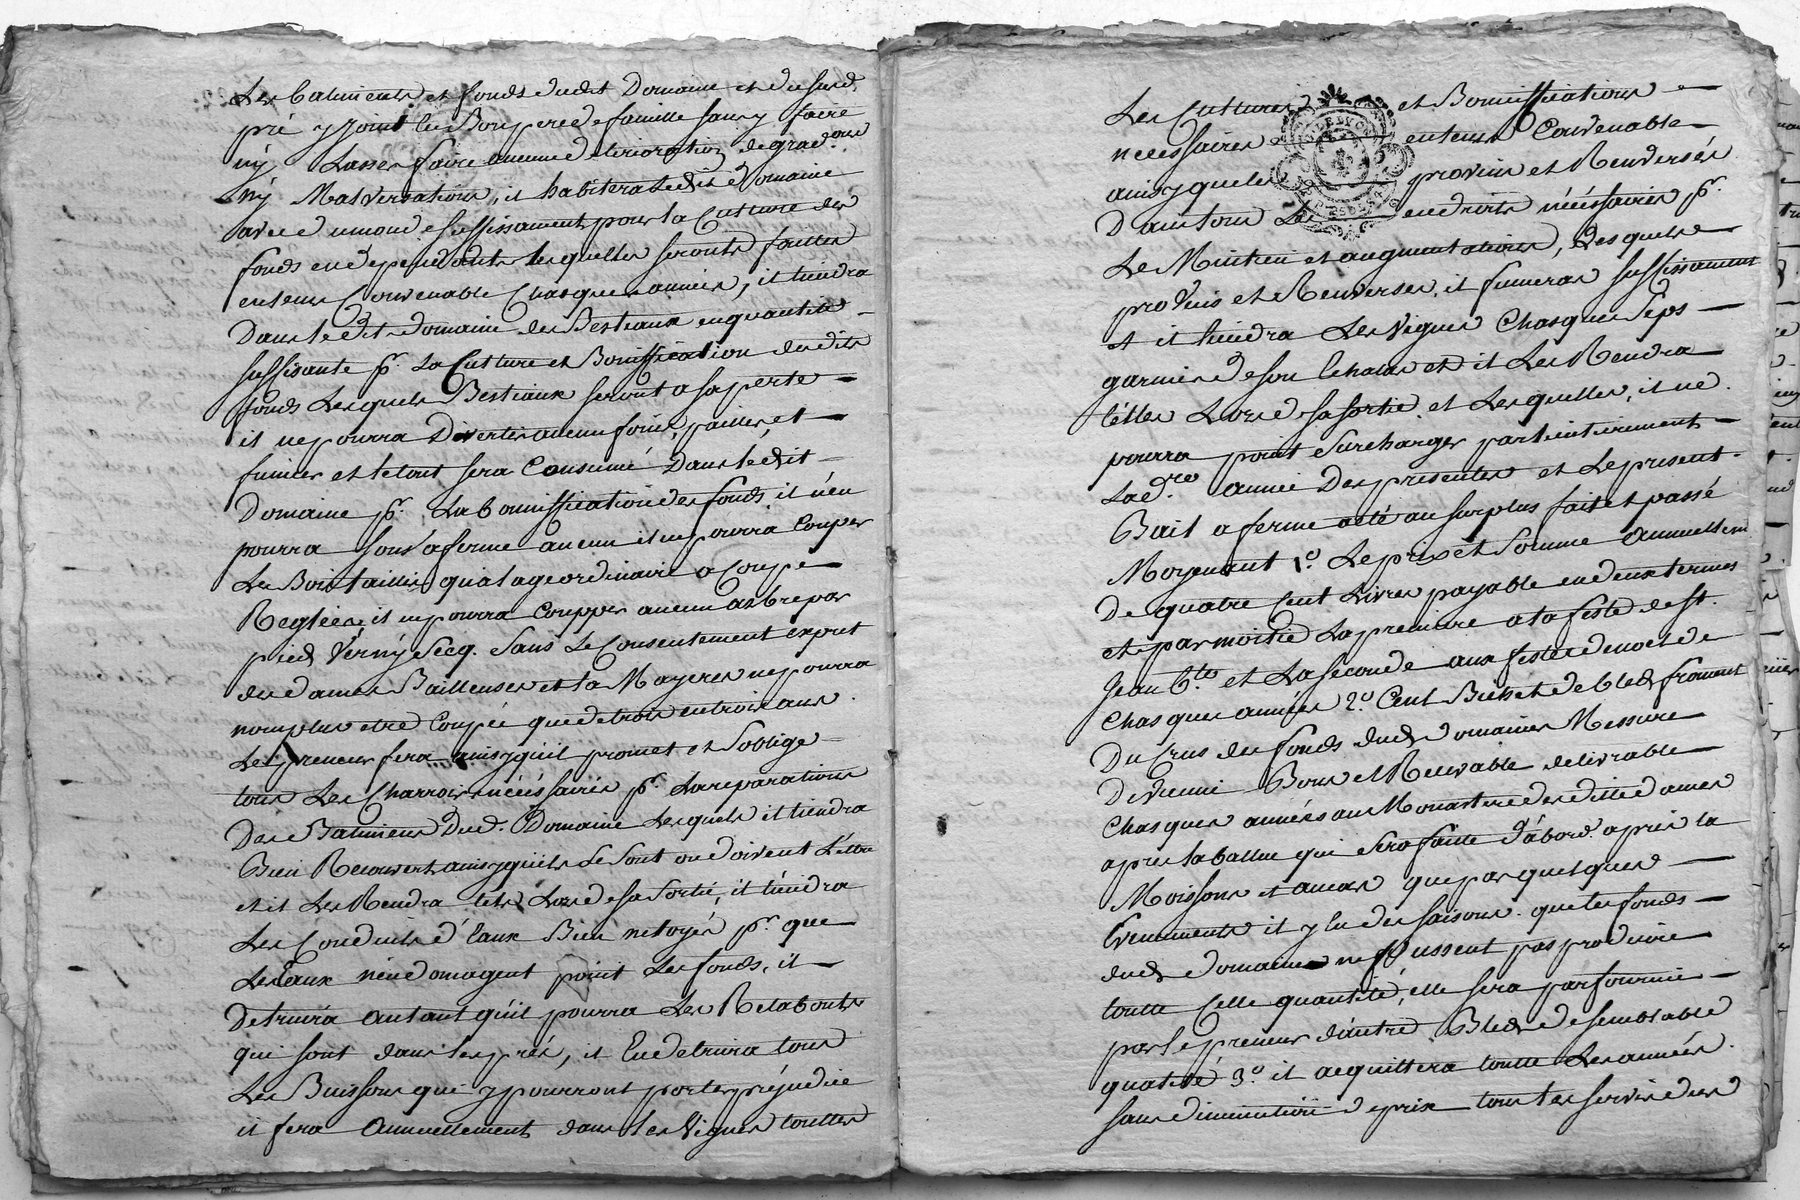 Les batiments et fonds dudit Domaine et du susd.
pré y joint en Bon pere de famille sans y faire
ny Lasser faire aucune deterioration degrad.ons
ny Malversations, il habitera ledit Domaine
avec du monde suffissament pour la Culture des
fonds en dépendants lesquelles seronts faittes
en tems Convenable Chasques années, il tiendra
Dans ledit Domaine des Bestiaux en quantité
suffisante p.r La Culture et Bonnification desdits
fonds Lesquels Bestiaux seront a sa perte
il ne pourra Divertir aucun foins, pailles, et
fumier et le tout sera Consumé Dans ledit
Domaine p.r La bonnification des fonds, il n'en
pourra sous aferme aucun il ne pourra Couper
Les Bois taillis qu'a l'age ordinaire a Coupe
Reglée, il ne pourra Coupper aucun arbre par
pied Verny Secq. Sans Le Consentement exprit
des dames Bailleuses et la Mayeres ne pourra
nomplus etre Coupée que de trois en trois ans.
Le preneur fera ainsy qu'il promet et s'oblige
tous Les Charrois nécéssaires p.r La reparations
Des Batiments Dud. Domaine Lesquels il tiendra
Bien Recouvert ainsy qu'ils Le sont ou doivent L'être
et il Les Rendra tels Lors de sa Sortie, il tiendra
Les Conduits d'Eaux Bien netoyés p.r que
Les Eaux n'endomagent point Les fonds, il
Detruira autant qu'il pourra Les Retabouts
qui sont dans les prés, il En detruira tous
Les Buissons qui y pourront porter préjudice
il fera Annuellement dans Les Vignes touttes
Les Cultures et Bonniffications
necessaires en tems Convenable
ainsy que les provins et Renversés
Dans tous Les endroits nécéssaires p.r
Le Mintien et augmentations, Desquels
provins et Renverses, il fumeras suffissament
et il tiendra Les Vignes Chasques Seps
garnies de son Echalas et il Les Rendra
télles Lors de sa sortie, et Lesquelles, il ne
pourra point Surcharger particulierement
La d.re année Des presentes et Le present
Bail a ferme a été au surplus fait et passé
Moyenant 1.o Le prix et Somme Annuellem
De quatre Cent Livres payable en deux termes
et par moitié La premiere a la feste de St.
Jean B.te et La Seconde aux festes de noel de
Chasques années 2.o Cent Bichet de bled froment
Du Crus des fonds dud. Domaines Messure
De Vienne Bons et Recevable delivrable
Chasques années au Monastere desdittes dames
apres la battue qui sera faitte d'abord apres la
Moissons et au cas que par quelques
Evenements il y Eu des saisons que les fonds
dud. Domaine ne pussent pas produire
toutte Cette quantité, elle sera parfournie
par Le preneur d'autre Bled de semblable
qualité 3.o il acquittera toutte Les années
sans diminution de prix tous Les servis dus